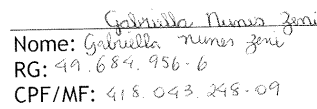 Gabriella Nunes Zeni
Nome: Gabriella nunes zeni
RG: 49.684.956-6
CPF/MF: 418.043.248-09